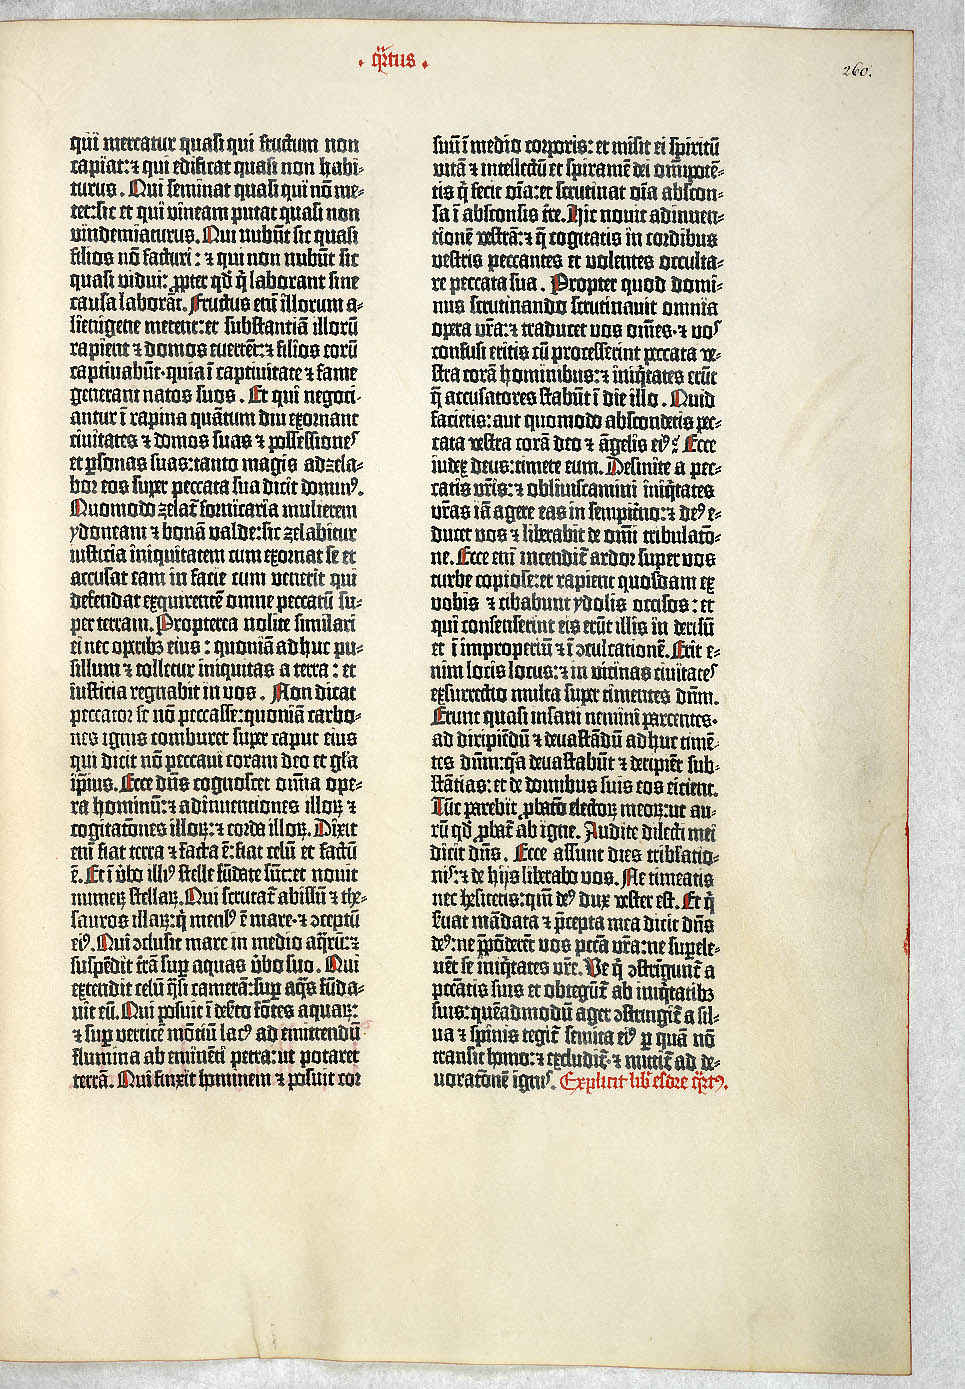 · q̄rtus ·
260.
qui mercatur quasi qui fructum non
capiat: ⁊ qui edificat quasi non habi-
turus. Qui seminat quasi qui nō me-
tet: sic et qui vineam putat quasi non
vindemiaturus. Qui nubūt sic quasi
filios nō facturi: ⁊ qui non nubūt sic
quasi vidui: ꝓpter qd̓ q̇ laborant sine
causa laborāt. Fructus eni͂ illorum a-
lienigene metent: et substantiā illorū
rapient ⁊ domos euertēt: ⁊ filios eorū
captiuabūt· quia ī captiuitate ⁊ fame
generant natos suos. Et qui negoci-
antur ī rapina quātum diu exornant
ciuitates ⁊ domos suas ⁊ possessiones
et ꝑsonas suas: tanto magis adzela-
bor eos super peccata sua dicit dominꝰ.
Quomodo zelat̄ fornicaria mulierem
ydoneam ⁊ bonam valde: sic zelabitur
iusticia iniquitatem cum exornat se et
accusat eam in facie cum venerit qui
defendat exquirentē omne peccatū su-
per terram. Propterea nolite similari
ei nec operibꝫ eius: quoniā adhuc pu-
sillum ⁊ tolletur iniquitas a terra: et
iusticia regnabit in vos. Non dicat
peccator se nō peccasse: quoniā carbo-
nes ignis comburet super caput eius
qui dicit nō peccaui coram deo et gl̄ia
ip̄ius. Ecce dn̄s cognoscet omnia ope-
ra hominū: ⁊ adinuentiones illoꝝ ⁊
cogitatōnes illoꝝ: ⁊ corda illoꝝ. Dixit
eni͂ fiat terra ⁊ facta ē: fiat celū et factū
ē. Et ī v̓bo illiꝰ stelle fūdate sūt: et nouit
numeꝝ stellaꝝ. Qui scrutat̄ abissū ⁊ the-
sauros illaꝝ: q̇ mensꝰ ē mare· ⁊ ꝯceptū
eiꝰ. Qui ꝯclusit mare in medio aq̄rū: ⁊
suspēdit t̄rā suꝑ aquas v̓bo suo. Qui
extendit celū q̄si camerā: suꝑ aq̄s fūda-
uit eū. Qui posuit ī deserto fōtes aquaꝝ:
⁊ suꝑ verticē mōtiū lacꝰ ad emittendū
flumina ab eminēti petra: ut potaret
terrā. Qui finxit hominem ⁊ posuit cor
suū ī medio corporis: et misit ei spiritū
vitā ⁊ intellectū et spiramē dei omīpotē-
tis q̇ fecit oīa: et scrutinat oīa abscon-
sa ī absconsis t̄re. Hic nouit adinuen-
tionē vestrā: ⁊ q̄ cogitatis in cordibus
vestris peccantes et volentes occulta-
re peccata sua. Propter quod domi-
nus scrutinando scrutinauit omnia
opera vr̄a: ⁊ traducet vos om̄es· ⁊ vos
confusi eritis cū processerint peccata ve-
stra corā hominibus: ⁊ iniq̇tates erūt
q̄ accusatores stabūt ī die illo. Quid
facietis: aut quomodo abscondetis pec-
cata vestra corā deo ⁊ āgelis eiꝰ? Ecce
iudex deus: timete eum. Desinite a pec-
catis vr̄is: ⁊ obliuiscamini iniq̇tates
vr̄as iā agere eas in sempit̓no: ⁊ deꝰ e-
ducet vos ⁊ liberabit de omī tribulatō-
ne. Ecce eni͂ incendit̄ ardor super vos
turbe copiose: et rapient quosdam ex
vobis ⁊ cibabunt ydolis occisos: et
qui consenserint eis erūt illis in derisū
et ī improperiū ⁊ ī ꝯculcationē. Erit e-
nim locis locus: ⁊ in vicinas ciuitates
exsurrectio multa super timentes dn̄m.
Erunt quasi insani nemini parcentes·
ad diripiēdū ⁊ deuastādū adhuc timē-
tes dn̄m: q̄a deuastabūt ⁊ decipiēt sub-
stātias: et de domibus suis eos eicient.
Tūc parebit ꝓbatō electoꝝ meoꝝ: ut au-
rū qd̓ ꝓbat̄ ab igne. Audite dilecti mei
dicit dn̄s. Ecce assunt dies tribl̓atio-
nis: ⁊ de hijs liberabo vos. Ne timeatis
nec hesitetis: qm̄ deꝰ dux vester est. Et q̇
s̓uat mādata ⁊ p̄cepta mea dicit dn̄s
deꝰ: ne p̄pōderēt vos pctā̄ vr̄a: ne suꝑele-
uēt se iniq̇tates vr̄e. Ve q̇ ꝯstrigunt̄ a
pctā̄tis suis et obtegūt̄ ab iniq̇tatibꝫ
suis: quēadmodū ager ꝯstringit̄ a sil-
ua ⁊ spinis tegit̄ semita eiꝰ ꝑ quā nō
transit homo: ⁊ excludit̄· ⁊ mittit̄ ad de-
uoratōnē ignis. Explicit lib̓ esdre q̄rtꝰ.